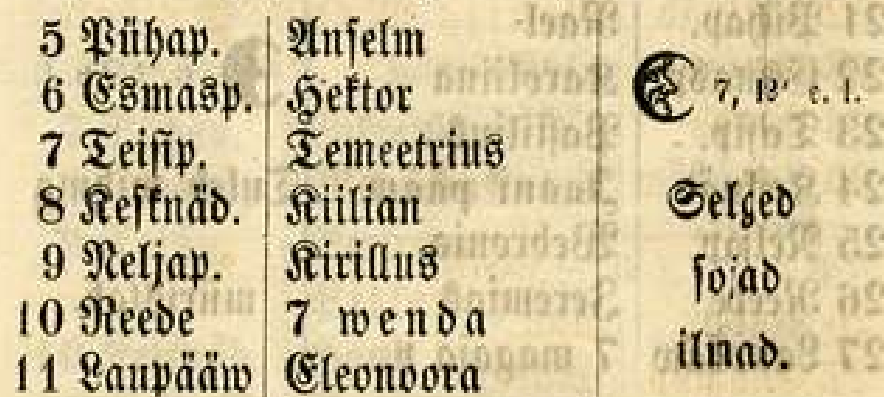 5 Pühap. Anselm
6 Esmasp. Hektor
7, 12' e. l.
7 Teisip. Temeetrius
8 Kesknäd. Kiilian
Selged
9 Neljap. Kirillus
sojad
10 Reede 7 wenda
ilmad.
11 Laupääw Eleonoora